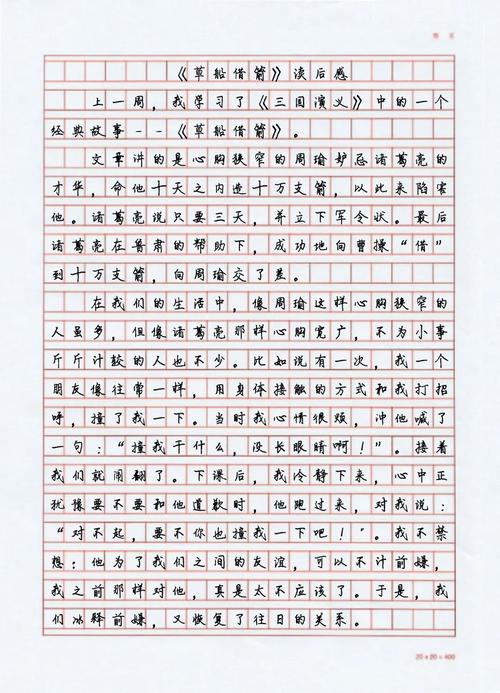 《草船借箭》读后感
上一周，我学习了《三国演义》中的一个
经典故事--《草船借箭》。
文章讲的是心胸狭窄的周瑜妒忌诸葛亮的
才华，命他十天之内造十万支箭，以此来陷害
他。诸葛亮说只要三天，并立下军令状。最后
诸葛亮在鲁肃的帮助下，成功地向曹操“借”
到十万支箭，向周瑜交了差。
在我们的生活中，像周瑜这样心胸狭窄的
人虽多，但像诸葛亮那样心胸宽广，不为小事
斤斤计较的人也不少。比如说有一次，我一个
朋友像往常一样，用身体接触的方式和我打招
呼，撞了我一下。当时我心情很烦，冲他喊了
一句：“撞我干什么，没长眼睛啊！”。接着
我们就闹翻了。下课后，我冷静下来，心中正
犹豫要不要和他道歉时，他跑过来，对我说：
“对不起，要不你也撞我一下吧！”。我不禁
想：他为了我们之间的友谊，可以不计前嫌，
我之前那样对他，真是太不应该了。于是，我
们冰释前嫌，又恢复了往日的关系。
20×20=400